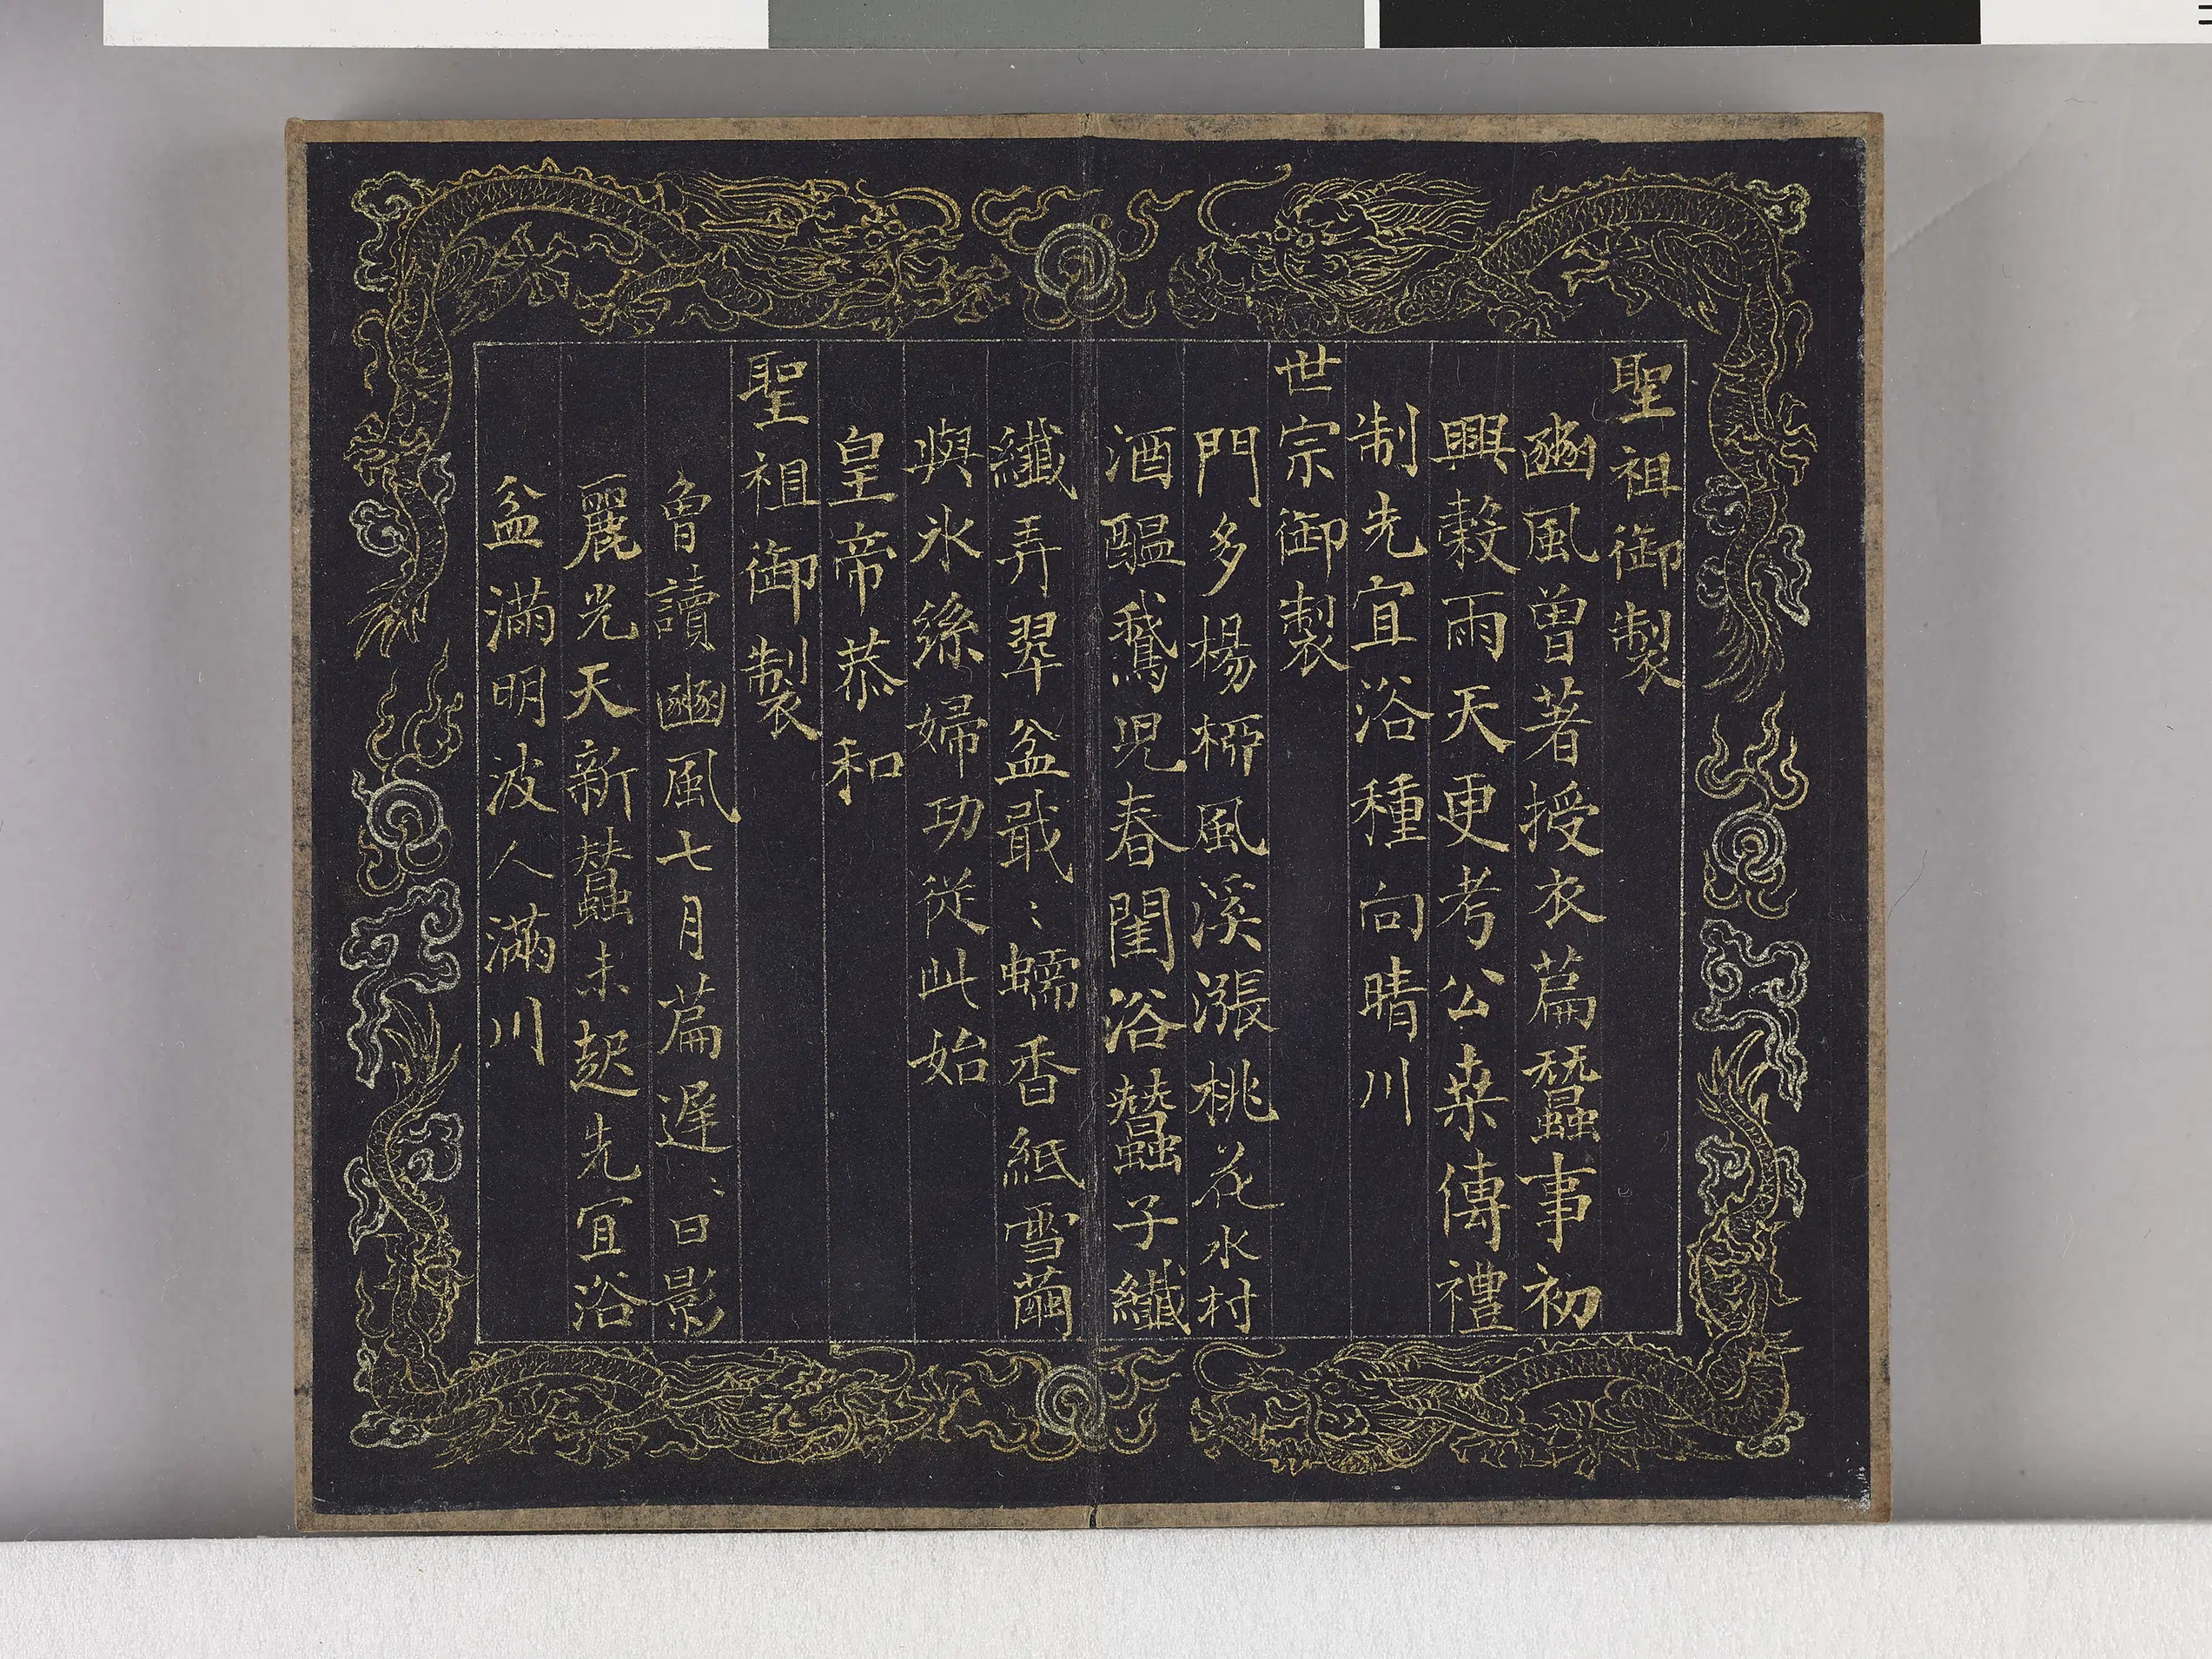 聖祖御製
豳風曾著授衣篇蠶事初
興榖雨天更考公桑傳禮
制先宜浴種向晴川
世宗御製
門多楊桺風溪漲桃花水村
酒醞鵞兒春閨浴蠶子纖
纖弄翠盆戢〻蠕香紙雪繭
與氷絲婦功從此始
皇帝恭和
聖祖御製
魯讀豳風七月篇遲〻日影
麗光天新蠶未起先宜浴
盆滿明波人滿川